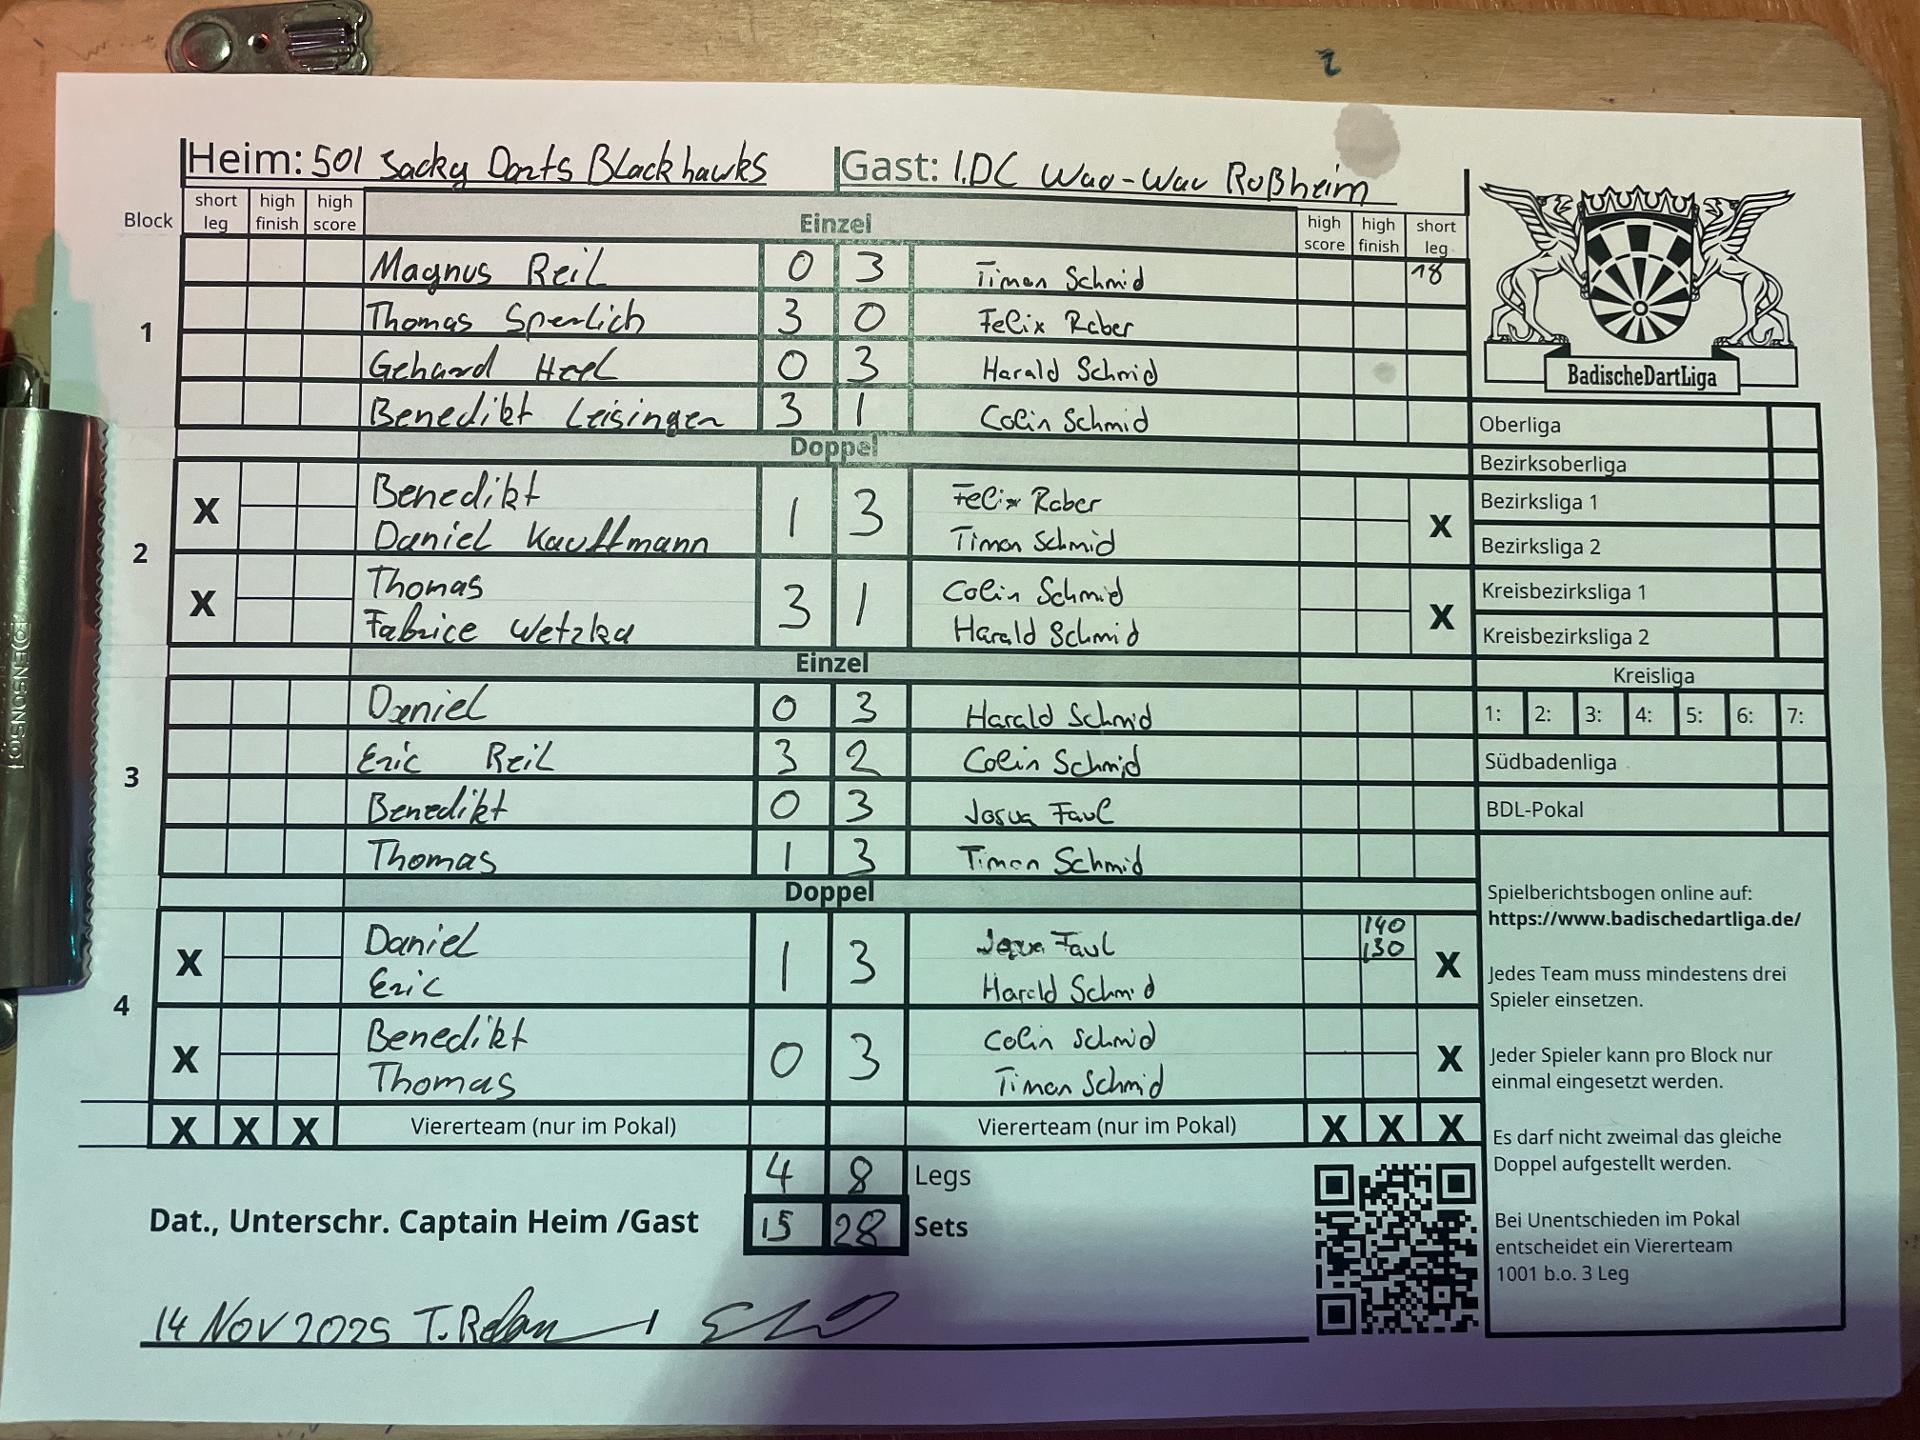 Heim: 501 Sacky Darts Blackhawks Gast: 1.DC Wau-Wau Roßheim
Block short leg high finish high score Einzel high score high finish short leg
1
Magnus Reil 0 3 Timon Schmid 18
Thomas Sperlich 3 0 Felix Raber
Gehard Heel 0 3 Harald Schmid
Benedikt Leisinger 3 1 Colin Schmid
Doppel
2
X Benedikt 1 3 Felix Raber X
Daniel Kauffmann Timon Schmid
X Thomas 3 1 Colin Schmid X
Fabrice Wetzka Harald Schmid
Einzel
3
Daniel 0 3 Harald Schmid
Eric Reil 3 2 Colin Schmid
Benedikt 0 3 Josua Faul
Thomas 1 3 Timon Schmid
Doppel
4
X Daniel 1 3 Josua Faul 140 130 X
Eric Harald Schmid
X Benedikt 0 3 Colin Schmid X
Thomas Timon Schmid
X X X Viererteam (nur im Pokal) Viererteam (nur im Pokal) X X X
4 8 Legs
Dat., Unterschr. Captain Heim /Gast 15 28 Sets
14 Nov 2025
BadischeDartLiga
Oberliga
Bezirksoberliga
Bezirksliga 1
Bezirksliga 2
Kreisbezirksliga 1
Kreisbezirksliga 2
Kreisliga
1: 2: 3: 4: 5: 6: 7:
Südbadenliga
BDL-Pokal
Spielberichtsbogen online auf:
https://www.badischedartliga.de/
Jedes Team muss mindestens drei
Spieler einsetzen.
Jeder Spieler kann pro Block nur
einmal eingesetzt werden.
Es darf nicht zweimal das gleiche
Doppel aufgestellt werden.
Bei Unentschieden im Pokal
entscheidet ein Viererteam
1001 b.o. 3 Leg